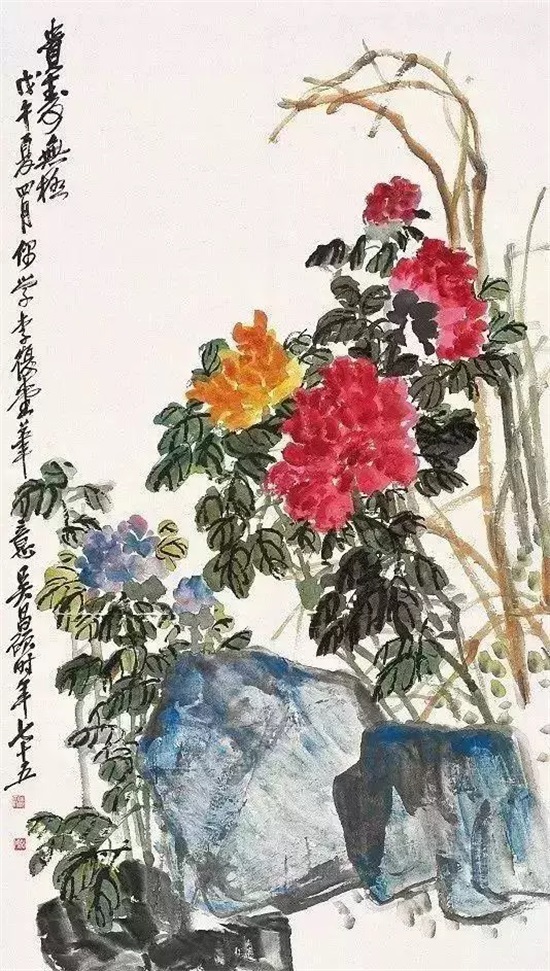 貴壽無極
戊午夏四月偶学李復堂筆意吳昌碩時年七十五